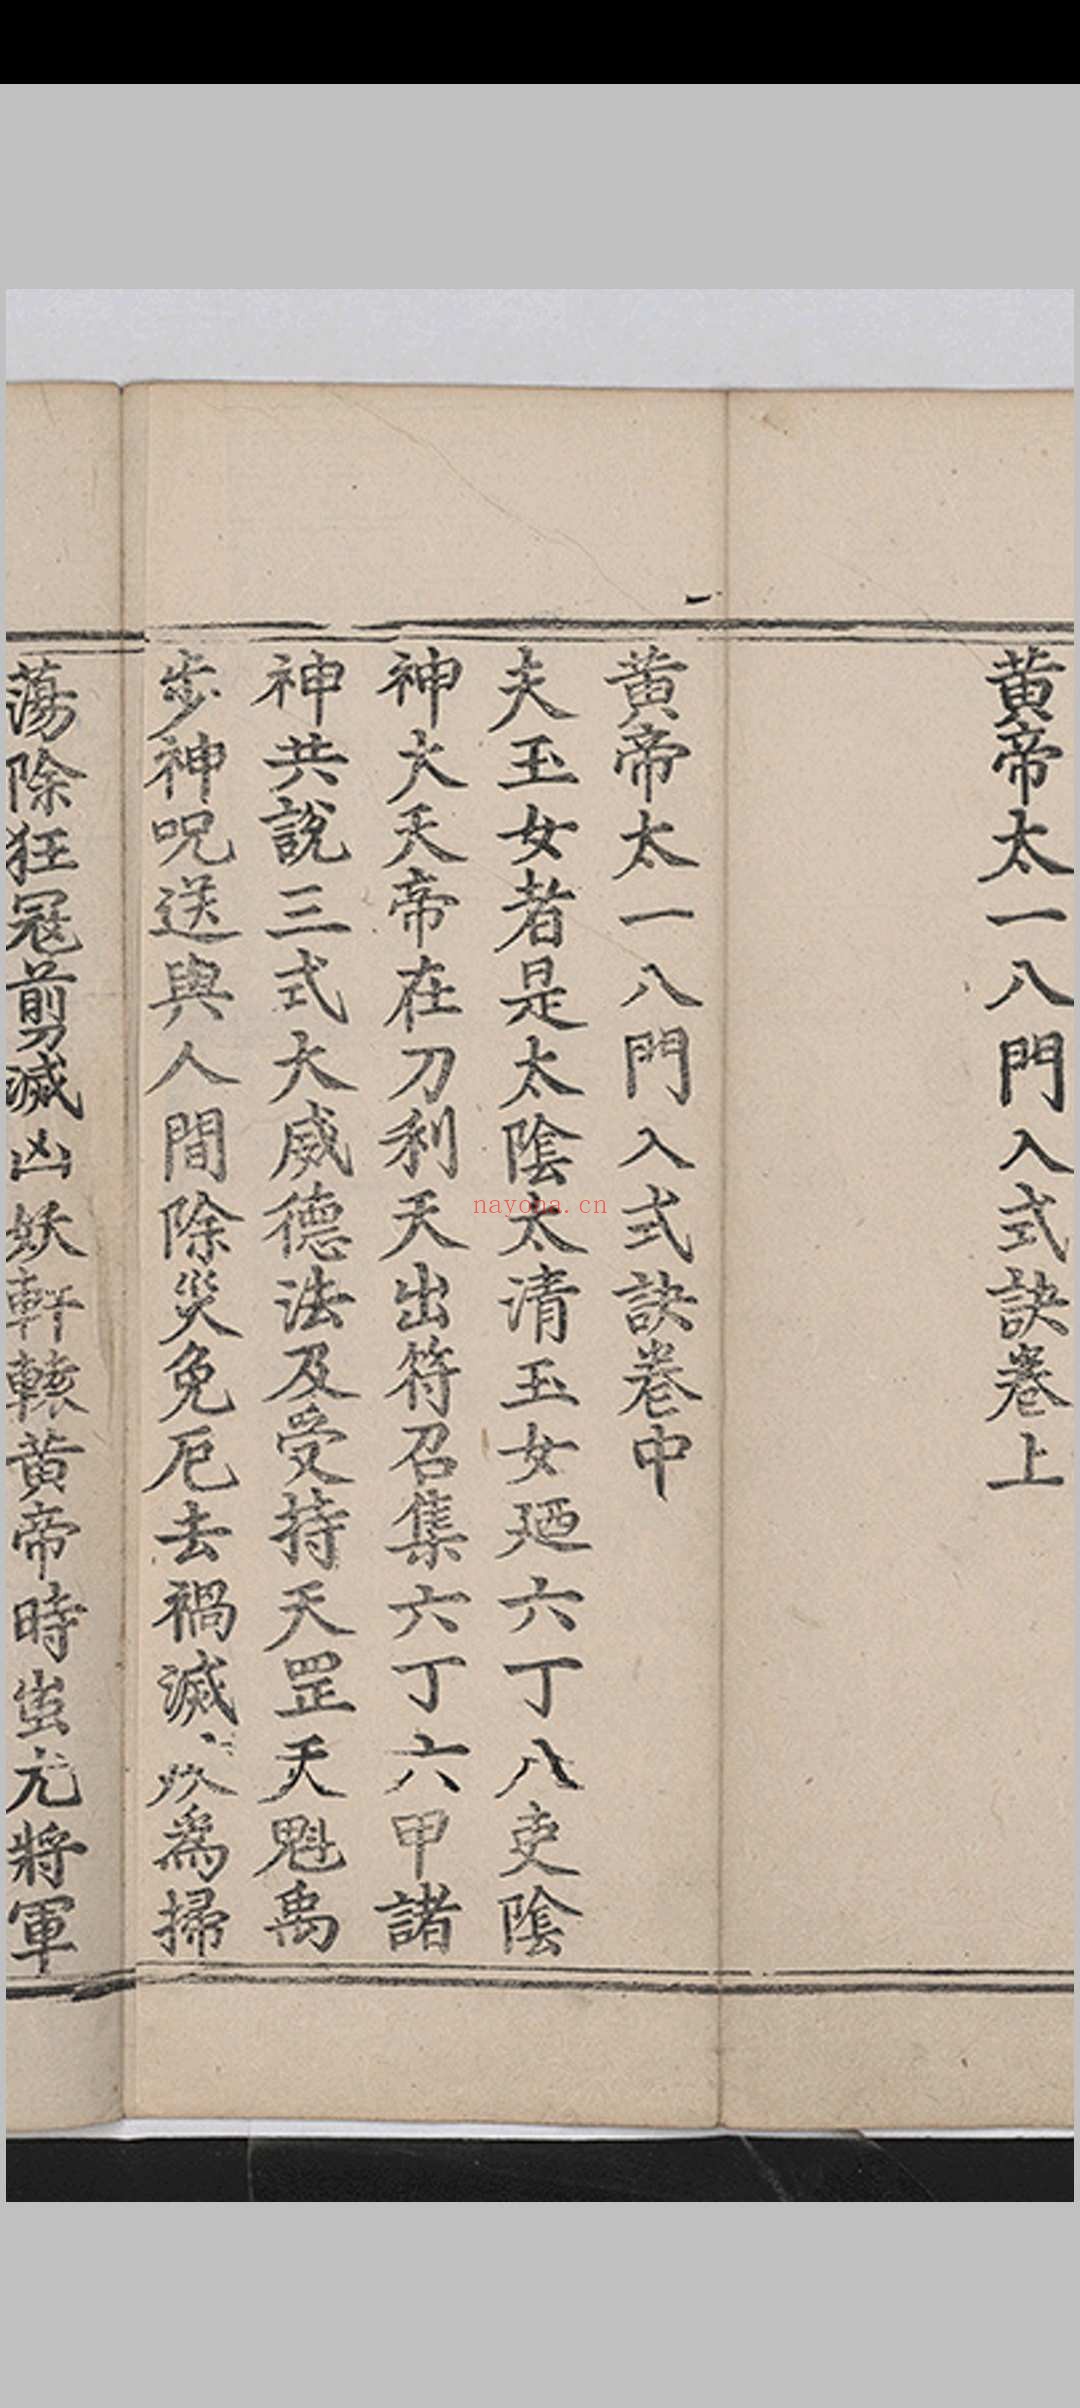 黄帝太一八門入式訣卷上
黄帝太一八門入式訣卷中
夫玉女者是太陰太清玉女廼六丁八史陰
神大天帝在刀利天出符召集六丁六甲諸
神共說三式大威德法及受持天罡天魁禹
步神呪送與人間除災免厄去禍滅為掃
蕩除狂冦剪滅凶妖軒轅黄帝時蚩尤將軍
nayona.cn